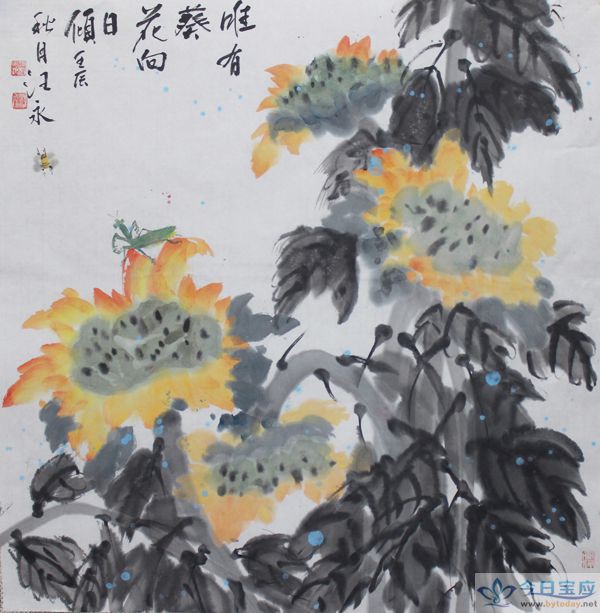 唯有
葵
花向
日
傾 壬辰
秋月汪永
今日宝应
www.bytoday.net